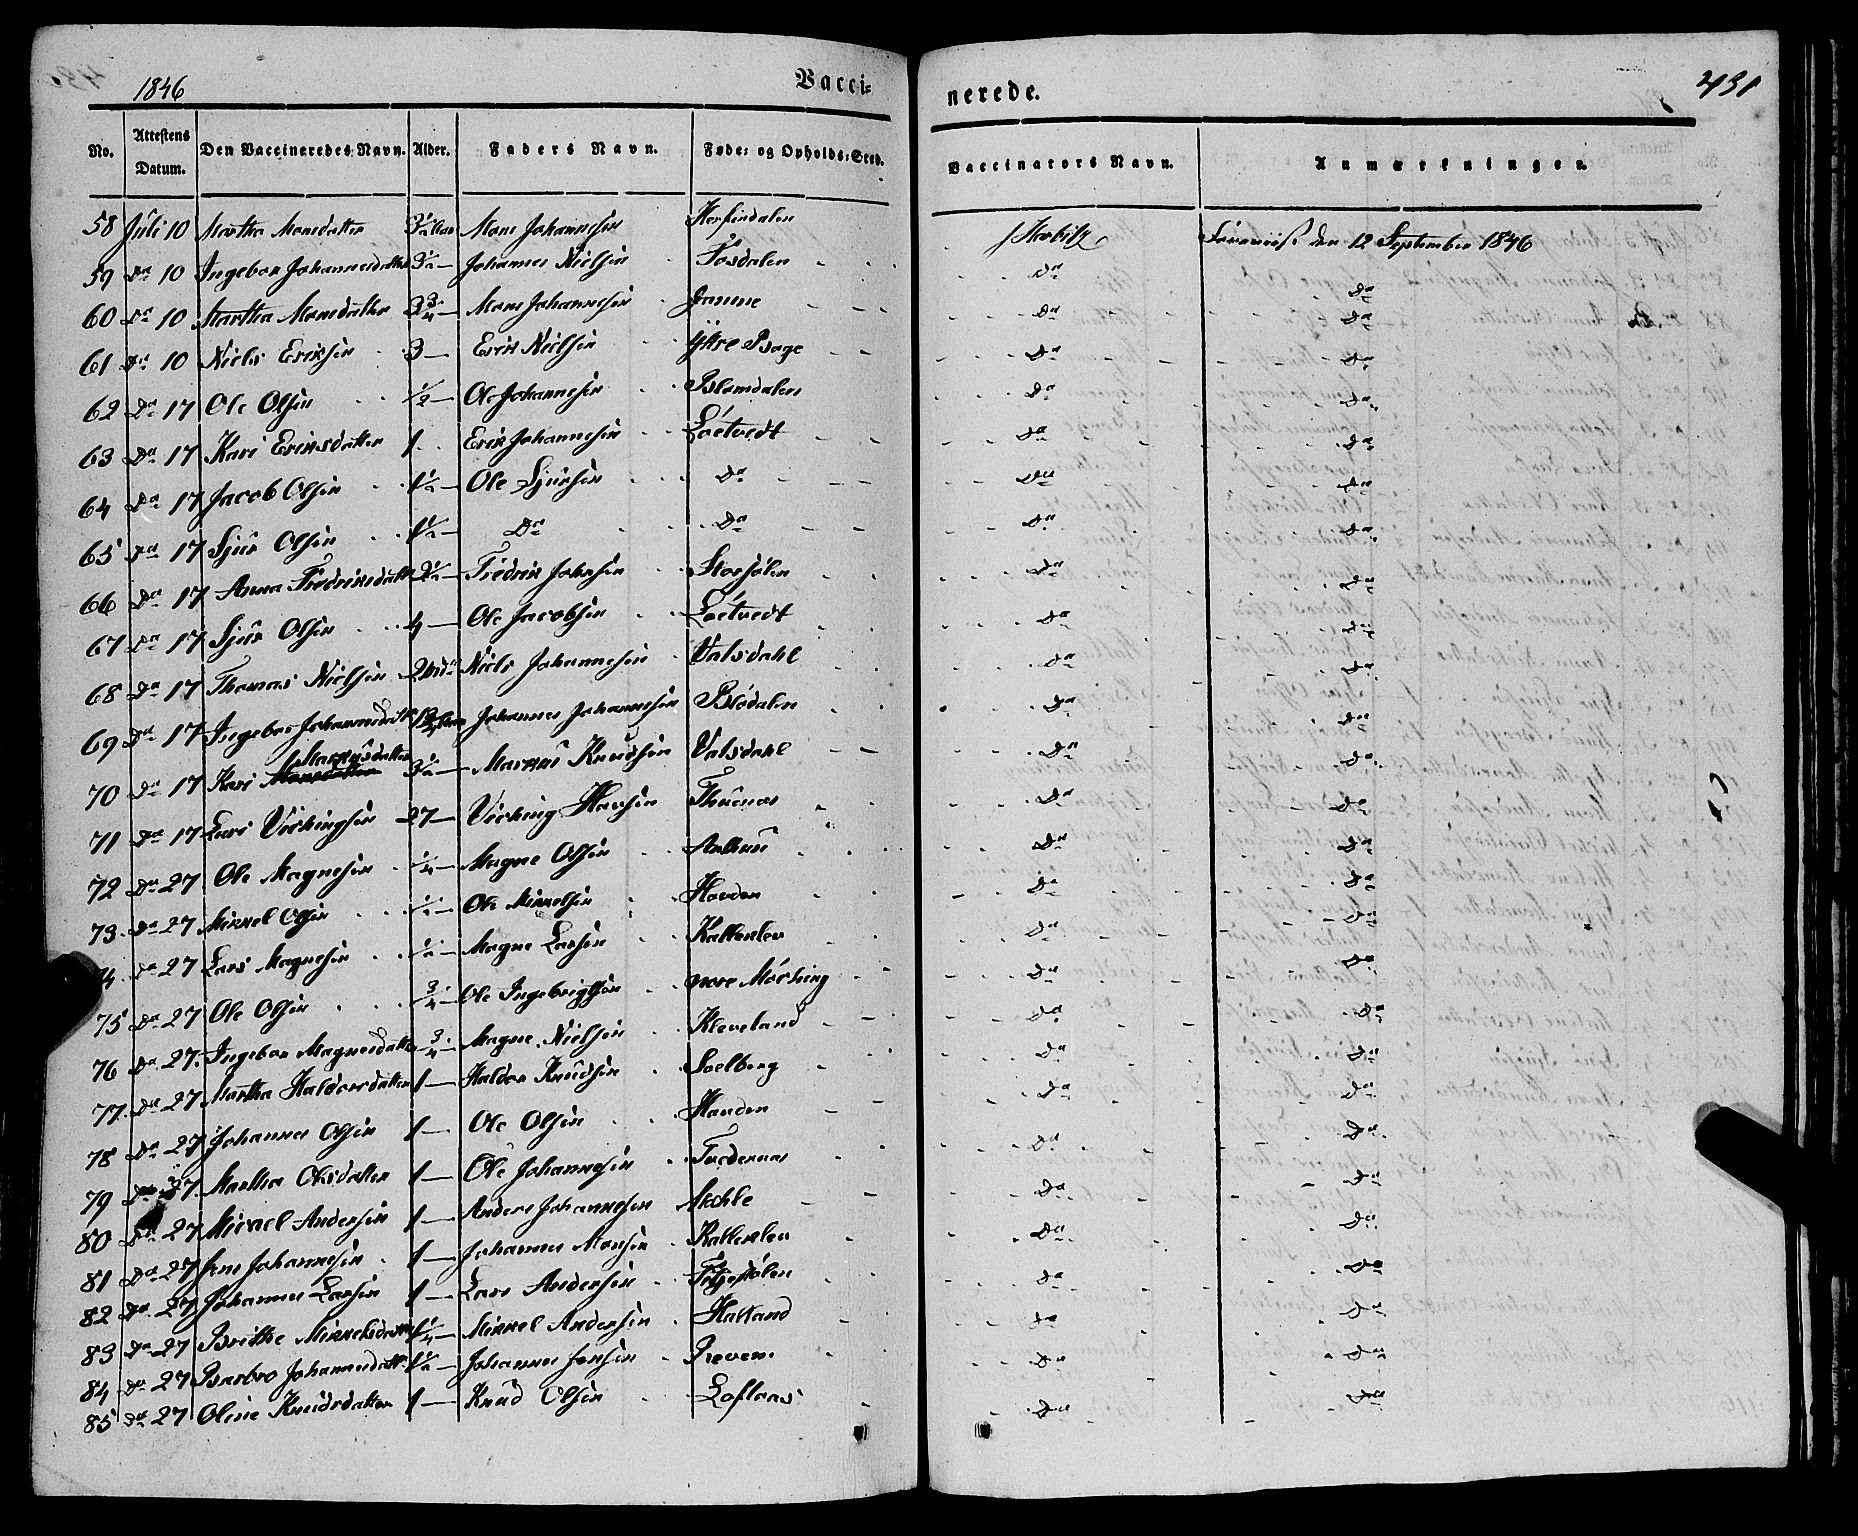 1846
Vacci=
nerede.
431
No. Attestens Datum. Den Vaccineredes Navn. Alder. Faders Navn. Føde= og Opholds=Sted. Vaccinators Navn. Anmærkninger.
58 Juli 10 Martha Monsdatter 3½ Aar Mons Johannesen Horsindalen Forevist den 12 September 1846
59 Do 10 Ingebor Johannesdatter 3½ — Johannes Nielsen Fosdalen Do Do
60 Do 10 Martha Monsdatter 2¾ — Mons Johannesen Do Do
61 Do 10 Niels Eriksen 3 — Erik Nielsen Ytre Bage Do Do
62 Do 17 Ole Olsen ½ — Ole Johannesen Blomdalen Do Do
63 Do 17 Kari Eriksdatter 1 Erik Johannesen Loetvedt Do Do
64 Do 17 Jacob Olsen 1½ — Ole Sjursen Do Do Do
65 Do 17 Sjur Olsen 1½ — Do Do Do Do
66 Do 17 Anna Fredriksdatter 2½ — Fredrik Johnsen Storsølen Do Do
67 Do 17 Sjur Olsen 4 — Ole Jacobsen Loetvedt Do Do
68 Do 17 Thomas Nielsen Niels Johannesen Valsdahl Do Do
69 Do 17 Ingebor Johannesdatter Johannes Johannesen Blodalen Do Do
70 Do 17 Kari Markusdatter 3½ — Markus Knudsen Valsdahl Do Do
71 Do 17 Lars Vichingsen 27 — Viching Hansen Thuenes Do Do
72 Do 27 Ole Magnesen ¼ — Magne Olsen Do Do
73 Do 27 Mikkel Olsen ½ — Ole Mikkelsen Handen Do Do
74 Do 27 Lars Magnesen ½ — Magne Larsen Kalleklev Do Do
75 Do 27 Ole Olsen ¾ — Ole Ingebrigtsen nore Mörhing Do Do
76 Do 27 Ingebor Magnesdatter ¾ — Magne Nielsen Kleveland Do Do
77 Do 27 Martha Haldorsdatter 1 — Haldor Knudsen Soelberg Do Do
78 Do 27 Johannes Olsen 1 — Ole Olsen Handen Do Do
79 Do 27 Martha Olsdatter 1 — Ole Johannesen Do Do
80 Do 27 Mikael Andersen 1 — Anders Johannesen Mehle Do Do
81 Do 27 Jens Johannesen 1 — Johannes Monsen Kalleklev Do Do
82 Do 27 Johannes Larsen 1 — Lars Andersen Do Do
83 Do 27 Brithe Mikkelsdatter 1¼ — Mikkel Andersen Halland Do Do
84 Do 27 Barbro Johannesdatter 1½ — Johannes Jensen Reven Do Do
85 Do 27 Oline Knudsdatter 1 — Knud Olsen Loflaas Do Do